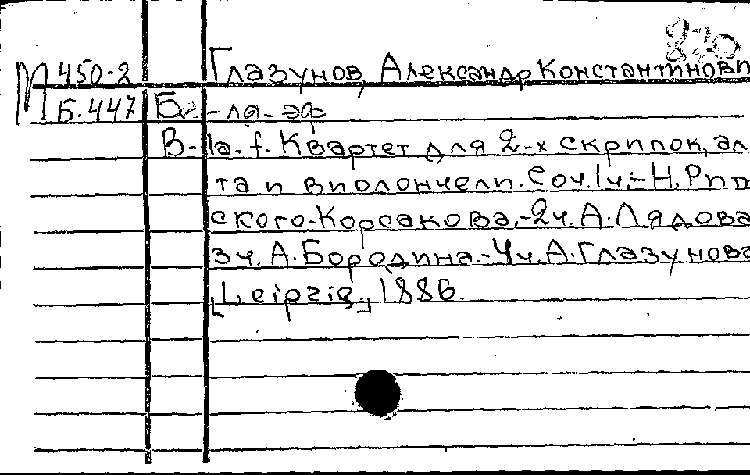 820
М 450-2 Глазунов, Александр Константинович
Б.447 Бе-ля-эф
B-la-f. Квартет для 2-х скрипок, аль
та и виолончели. Соч. 1ч.-Н. Рим
ского-Корсакова.-2ч. А. Лядова
3ч. А. Бородина.-4ч. А. Глазунова
[Leipzig], 1886.